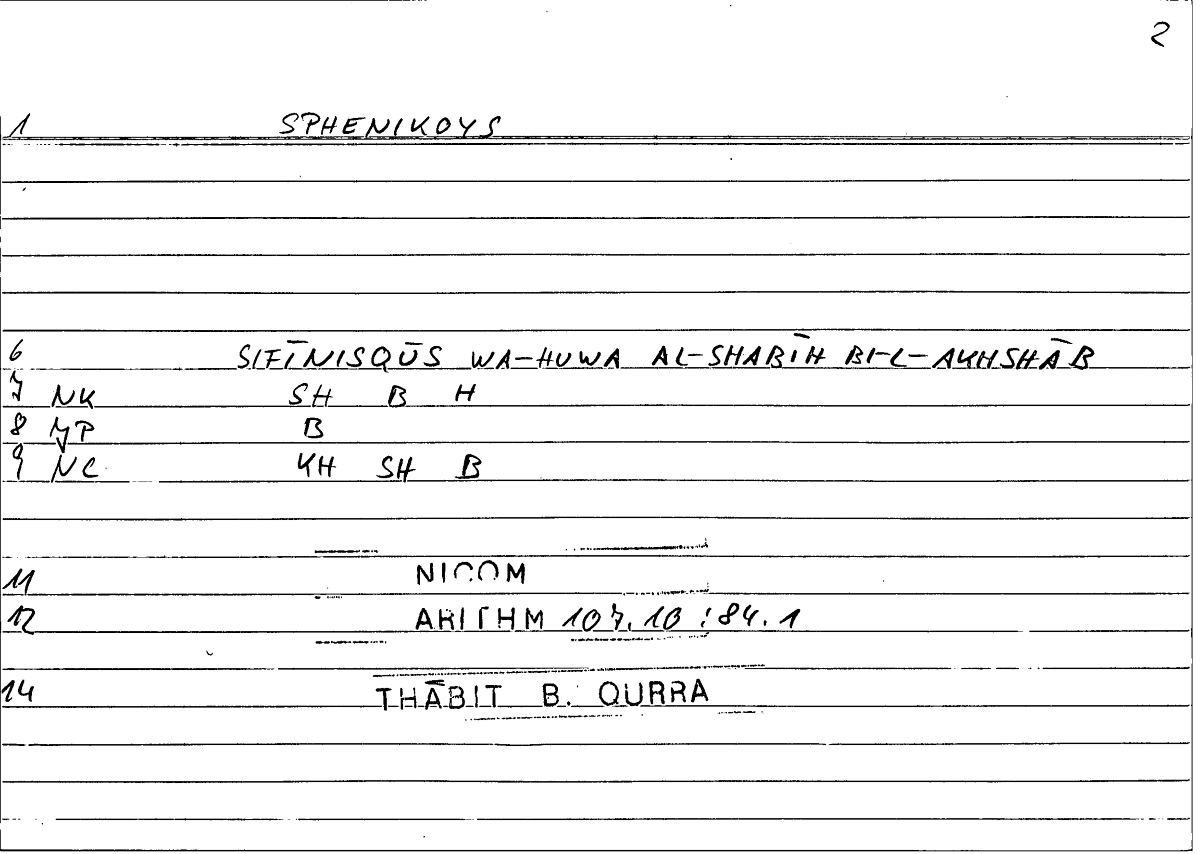 2
1 SPHENIKOYS
6 SIFĪNISQŪS WA-HUWA AL-SHABĪH BI-L-AKHSHĀB
7 NK SH B H
8 YP B
9 NC KH SH B
11 NICOM
12 ARITHM 107.10 : 84.1
14 THĀBIT B. QURRA